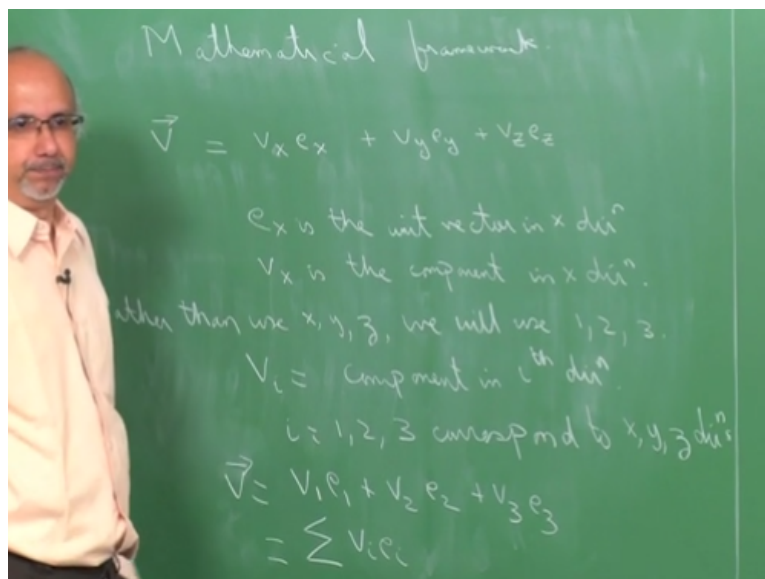 Mathematical framework.
V⃗ = vₓeₓ + vᵧeᵧ + v_z e_z
eₓ is the unit vector in x dirⁿ
Vₓ is the component in x dirⁿ.
ather than use x, y, z, we will use 1, 2, 3.
Vᵢ = component in iᵗʰ dirⁿ.
i = 1, 2, 3 correspond to x, y, z dirⁿs
V⃗ = V₁e₁ + V₂e₂ + V₃e₃
= ∑ Vᵢeᵢ